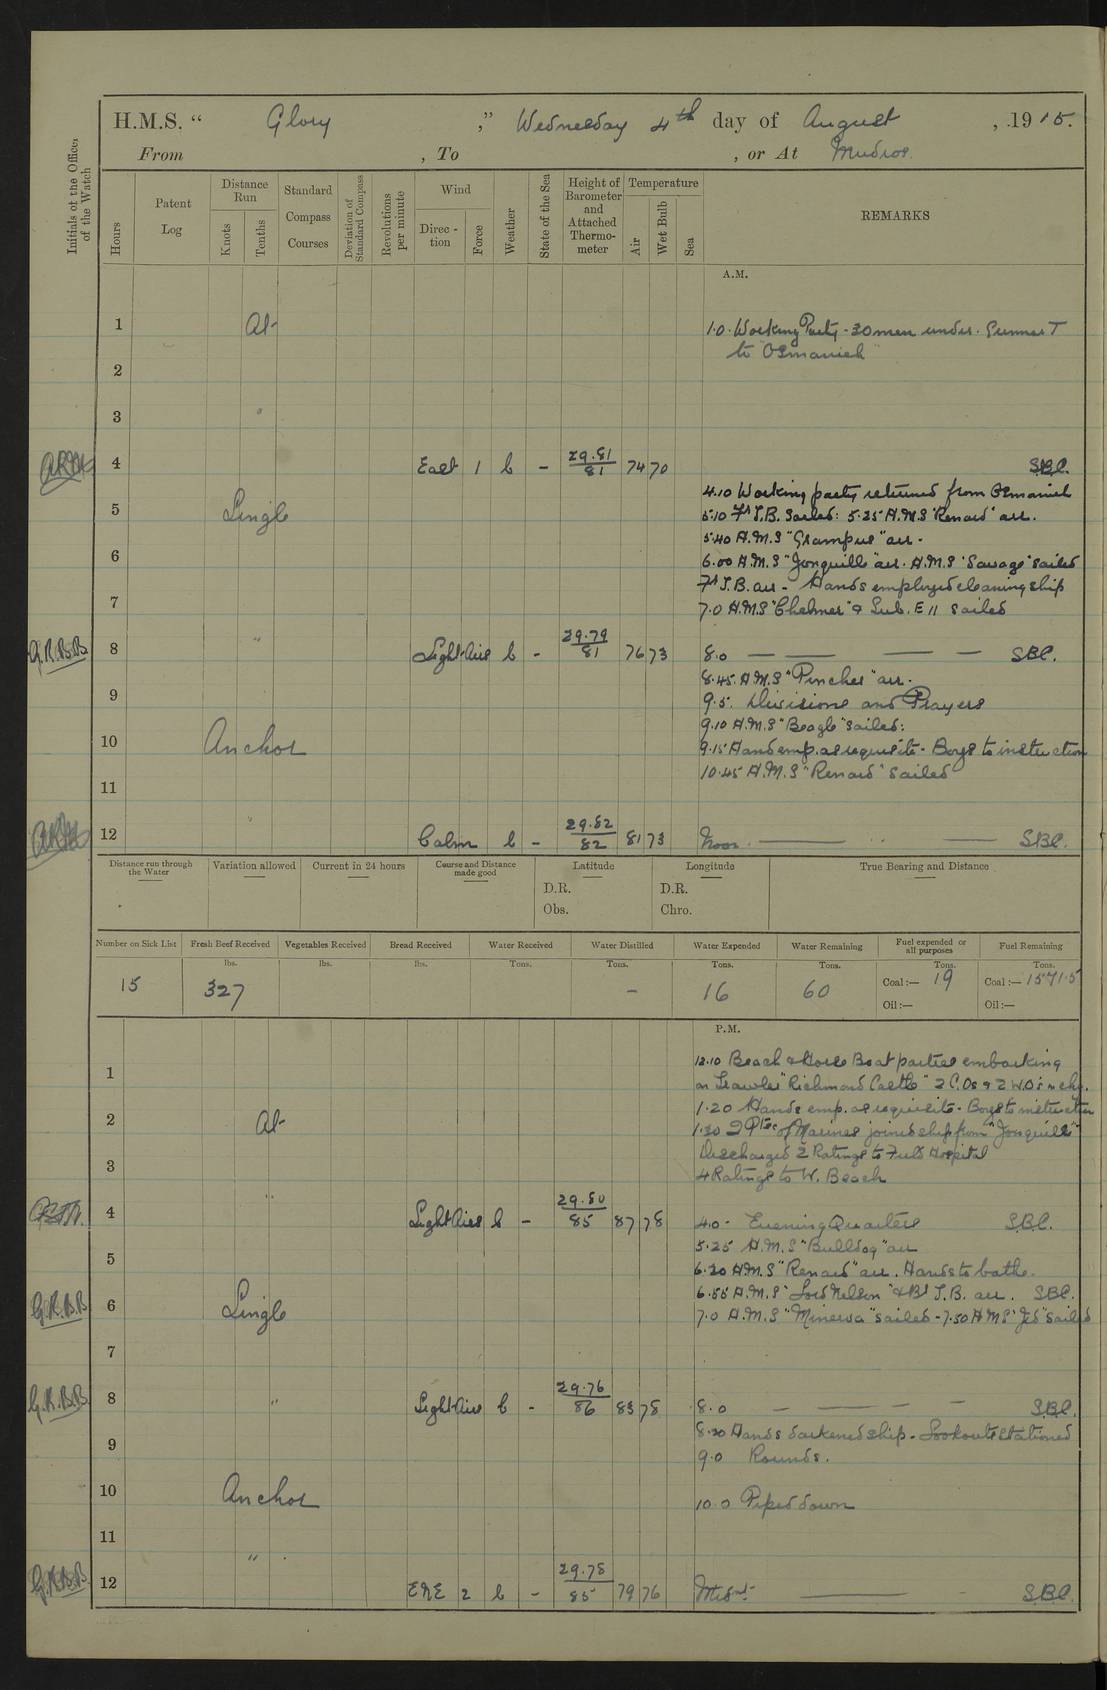 H.M.S. “ Glory ,” Wednesday 4th day of August , 1915.
From , To , or At Mudros.
Initials of the Officer of the Watch
Hours
Patent Log
Distance Run
Knots
Tenths
Standard Compass Courses
Deviation of Standard Compass
Revolutions per minute
Wind
Direc-tion
Force
Weather
State of the Sea
Height of Barometer and Attached Thermo-meter
Temperature
Air
Wet Bulb
Sea
REMARKS
A.M.
1 At 1.0. Working Party - 30 men under. Gunner T
to "Osmanieh"
2
3 "
4 East 1 b - 29.81/81 74 70 SBC.
4.10 Working party returned from Osmanieh
5 Single 5.10 T.B. Sailed: 5.25 H.M.S "Renard" arr.
5.40 H.M.S "Grampus" arr.
6 6.00 H.M.S "Jonquille" arr. H.M.S "Savage" sailed
T.B. arr - Hands employed cleaning ship
7 7.0 H.M.S "Chelmer" & Sub. E11 sailed
G.R.B.B. 8 " Light Airs b - 29.79/81 76 73 8.0 — — — — SBC.
8.45. H.M.S "Pincher" arr.
9 9.5. Divisions and Prayers
9.10 H.M.S "Beagle" sailed:
10 Anchor 9.15 Hands emp. as requisite - Boys to instruction
10.45 H.M.S "Renard" sailed
11
12 " Calm b - 29.82/82 81 73 Noon. — — SBC.
Distance run through the Water
Variation allowed
Current in 24 hours
Course and Distance made good
Latitude
D.R.
Obs.
Longitude
D.R.
Chro.
True Bearing and Distance
Number on Sick List
Fresh Beef Received
Vegetables Received
Bread Received
Water Received
Water Distilled
Water Expended
Water Remaining
Fuel expended or all purposes
Fuel Remaining
lbs. lbs. lbs. Tons. Tons. Tons. Tons. Tons. Tons.
15 327 - 16 60 Coal:— 19 Coal:— 1571.5
Oil:— Oil:—
P.M.
12.10 Beach & Horse Boat parties embarking
1 on Trawler "Richmond Castle" 2 C.Os & 2 W.O's in chg.
1.20 Hands emp. as requisite - Boys to instruction
2 At 1.30 2 Ptes of Marines joined ship from "Jonquille"
Discharged 2 Ratings to Field Hospital
3 4 Ratings to W. Beach
4 " Light Airs b - 29.80/85 87 78 4.0 - Evening Quarters SBC.
5.25 H.M.S "Bulldog" arr
5 6.20 H.M.S "Renard" arr. Hands to bathe.
G.R.B.B 6 Single 6.55 H.M.S "Lord Nelson" & T.B. arr. SBC.
7.0 H.M.S "Minerva" sailed - 7.50 HMS "Jed" sailed
7
G.R.B.B. 8 " Light Airs b - 29.76/86 83 78 8.0 — — — — SBC.
8.30 Hands darkened ship. Lookouts stationed
9 9.0 Rounds.
10 Anchor 10.0 Piped down
11
G.R.B.B. 12 " ENE 2 b - 29.78/85 79 76 Midnt. — - SBC.